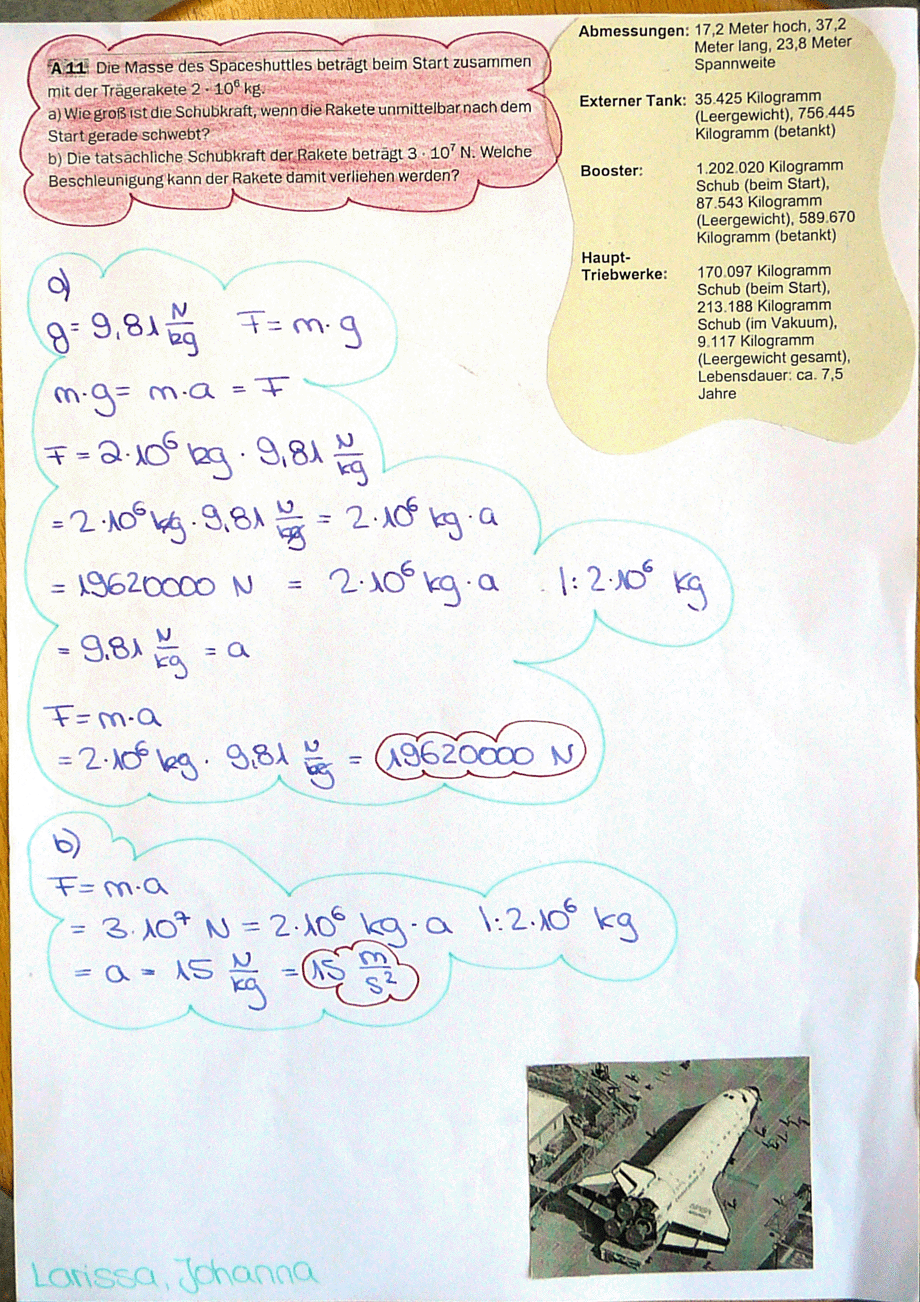 A 11 Die Masse des Spaceshuttles beträgt beim Start zusammen
mit der Trägerakete 2 · 10⁶ kg.
a) Wie groß ist die Schubkraft, wenn die Rakete unmittelbar nach dem
Start gerade schwebt?
b) Die tatsächliche Schubkraft der Rakete beträgt 3 · 10⁷ N. Welche
Beschleunigung kann der Rakete damit verliehen werden?
Abmessungen: 17,2 Meter hoch, 37,2
Meter lang, 23,8 Meter
Spannweite
Externer Tank: 35.425 Kilogramm
(Leergewicht), 756.445
Kilogramm (betankt)
Booster: 1.202.020 Kilogramm
Schub (beim Start),
87.543 Kilogramm
(Leergewicht), 589.670
Kilogramm (betankt)
Haupt-
Triebwerke: 170.097 Kilogramm
Schub (beim Start),
213.188 Kilogramm
Schub (im Vakuum),
9.117 Kilogramm
(Leergewicht gesamt),
Lebensdauer: ca. 7,5
Jahre
a)
g = 9,81 N/kg F = m · g
m · g = m · a = F
F = 2 · 10⁶ kg · 9,81 N/kg
= 2 · 10⁶ kg · 9,81 N/kg = 2 · 10⁶ kg · a
= 19620000 N = 2 · 10⁶ kg · a |: 2 · 10⁶ kg
= 9,81 N/kg = a
F = m · a
= 2 · 10⁶ kg · 9,81 N/kg = 19620000 N
b)
F = m · a
= 3 · 10⁷ N = 2 · 10⁶ kg · a |: 2 · 10⁶ kg
= a = 15 N/kg = 15 m/s²
Larissa, Johanna